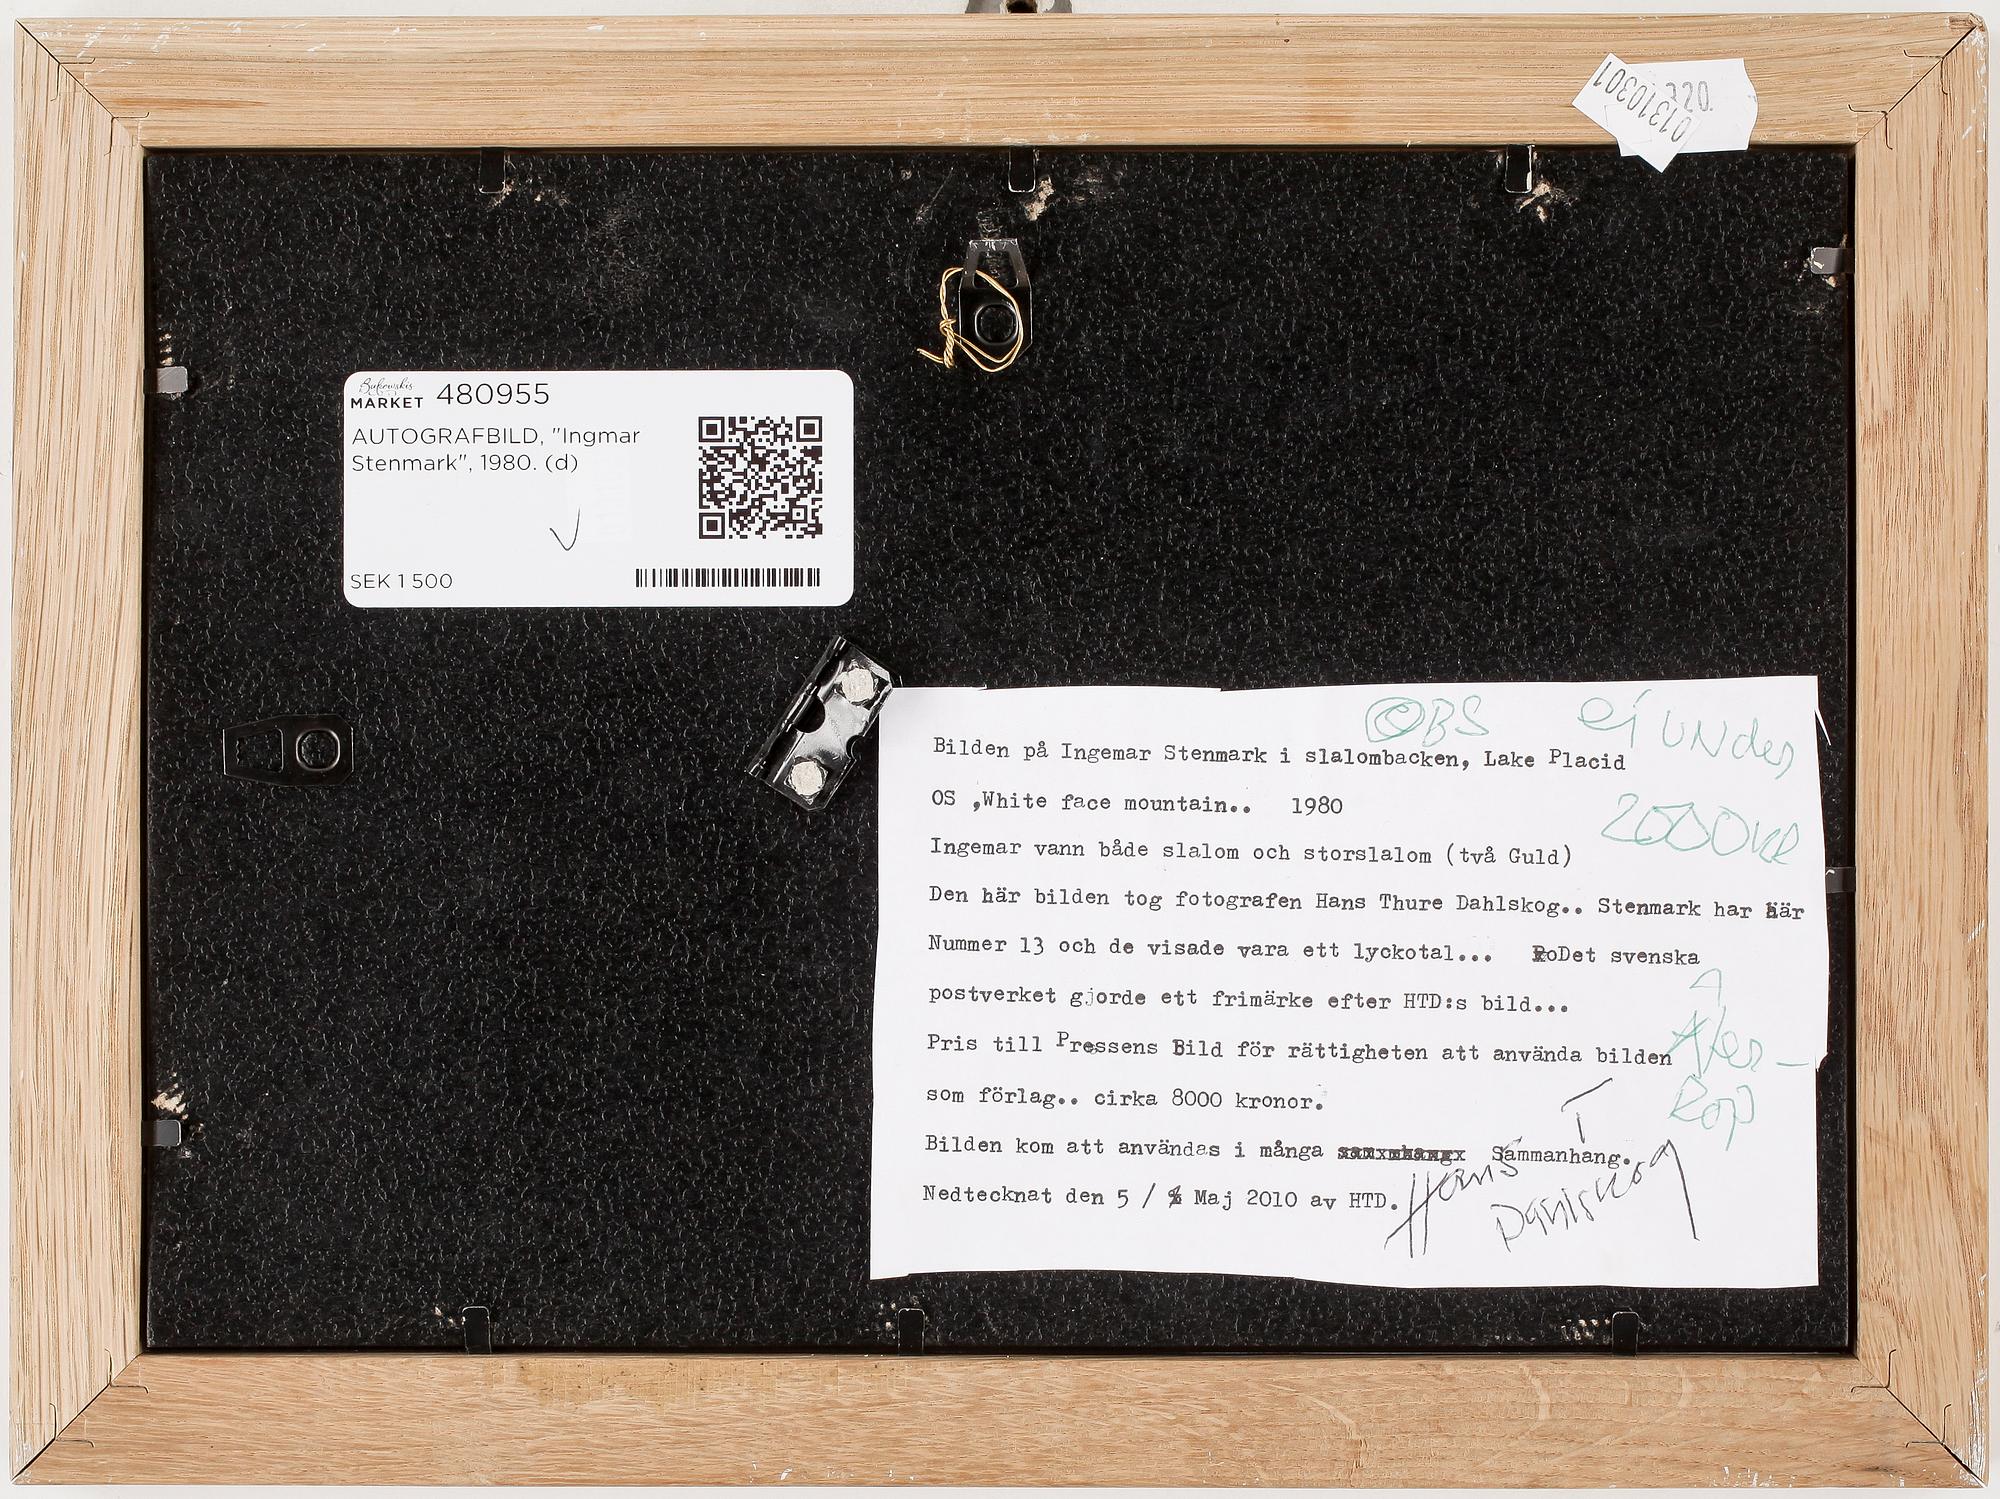 320.
01310301
Bukowskis
MARKET 480955
AUTOGRAFBILD, "Ingmar
Stenmark", 1980. (d)
SEK 1 500
OBS ej under
2000 kr
Bilden på Ingemar Stenmark i slalombacken, Lake Placid
OS ,White face mountain.. 1980
Ingemar vann både slalom och storslalom (två Guld)
Den här bilden tog fotografen Hans Thure Dahlskog.. Stenmark har här
Nummer 13 och de visade vara ett lyckotal... RoDet svenska
postverket gjorde ett frimärke efter HTD:s bild...
Pris till Pressens Bild för rättigheten att använda bilden
som förlag.. cirka 8000 kronor.
Åter-
Rop
Bilden kom att användas i många Sammanhang.
Nedtecknat den 5 / Maj 2010 av HTD.
Hans T
Dahlskog